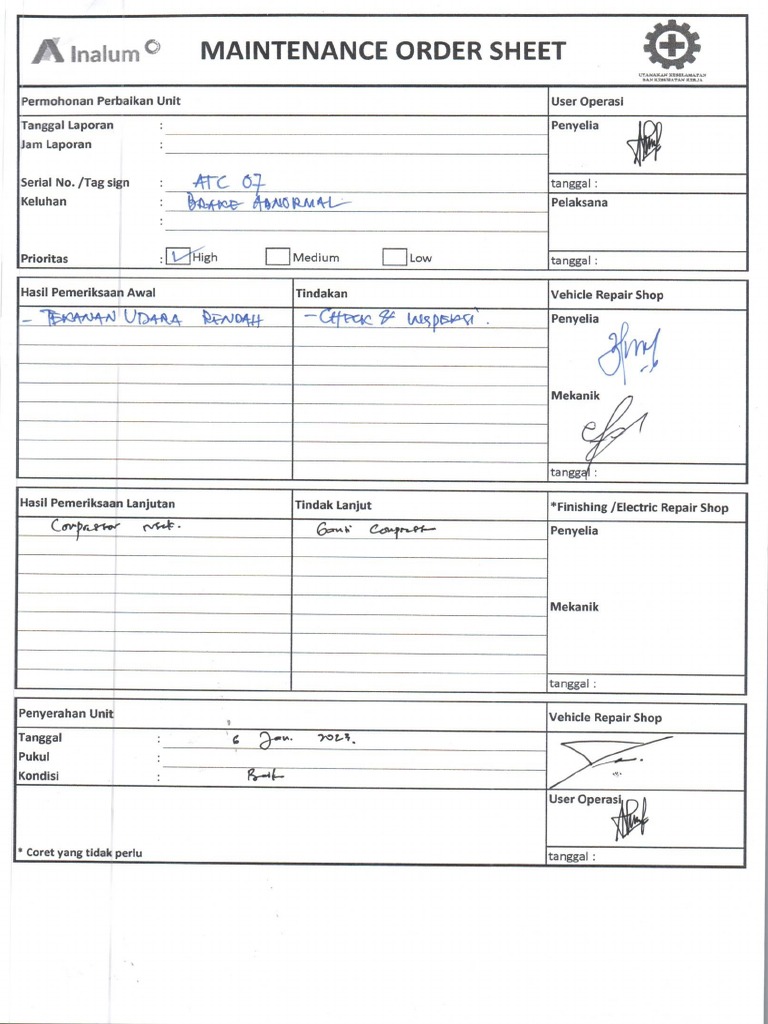 Inalum
MAINTENANCE ORDER SHEET
UTAMAKAN KESELAMATAN
DAN KESEHATAN KERJA
Permohonan Perbaikan Unit
User Operasi
Tanggal Laporan :
Penyelia
Jam Laporan :
Serial No. /Tag sign : ATC 07
tanggal :
Keluhan : BRAKE ABNORMAL
Pelaksana
:
Prioritas : High Medium Low
tanggal :
Hasil Pemeriksaan Awal
Tindakan
Vehicle Repair Shop
- TEKANAN UDARA RENDAH
- CHECK & INSPEKSI.
Penyelia
Mekanik
tanggal :
Hasil Pemeriksaan Lanjutan
Tindak Lanjut
*Finishing /Electric Repair Shop
Compressor
Ganti Compressor
Penyelia
Mekanik
tanggal :
Penyerahan Unit
Vehicle Repair Shop
Tanggal : 6 Jan. 2023.
Pukul :
Kondisi : Baik
User Operasi
* Coret yang tidak perlu
tanggal :